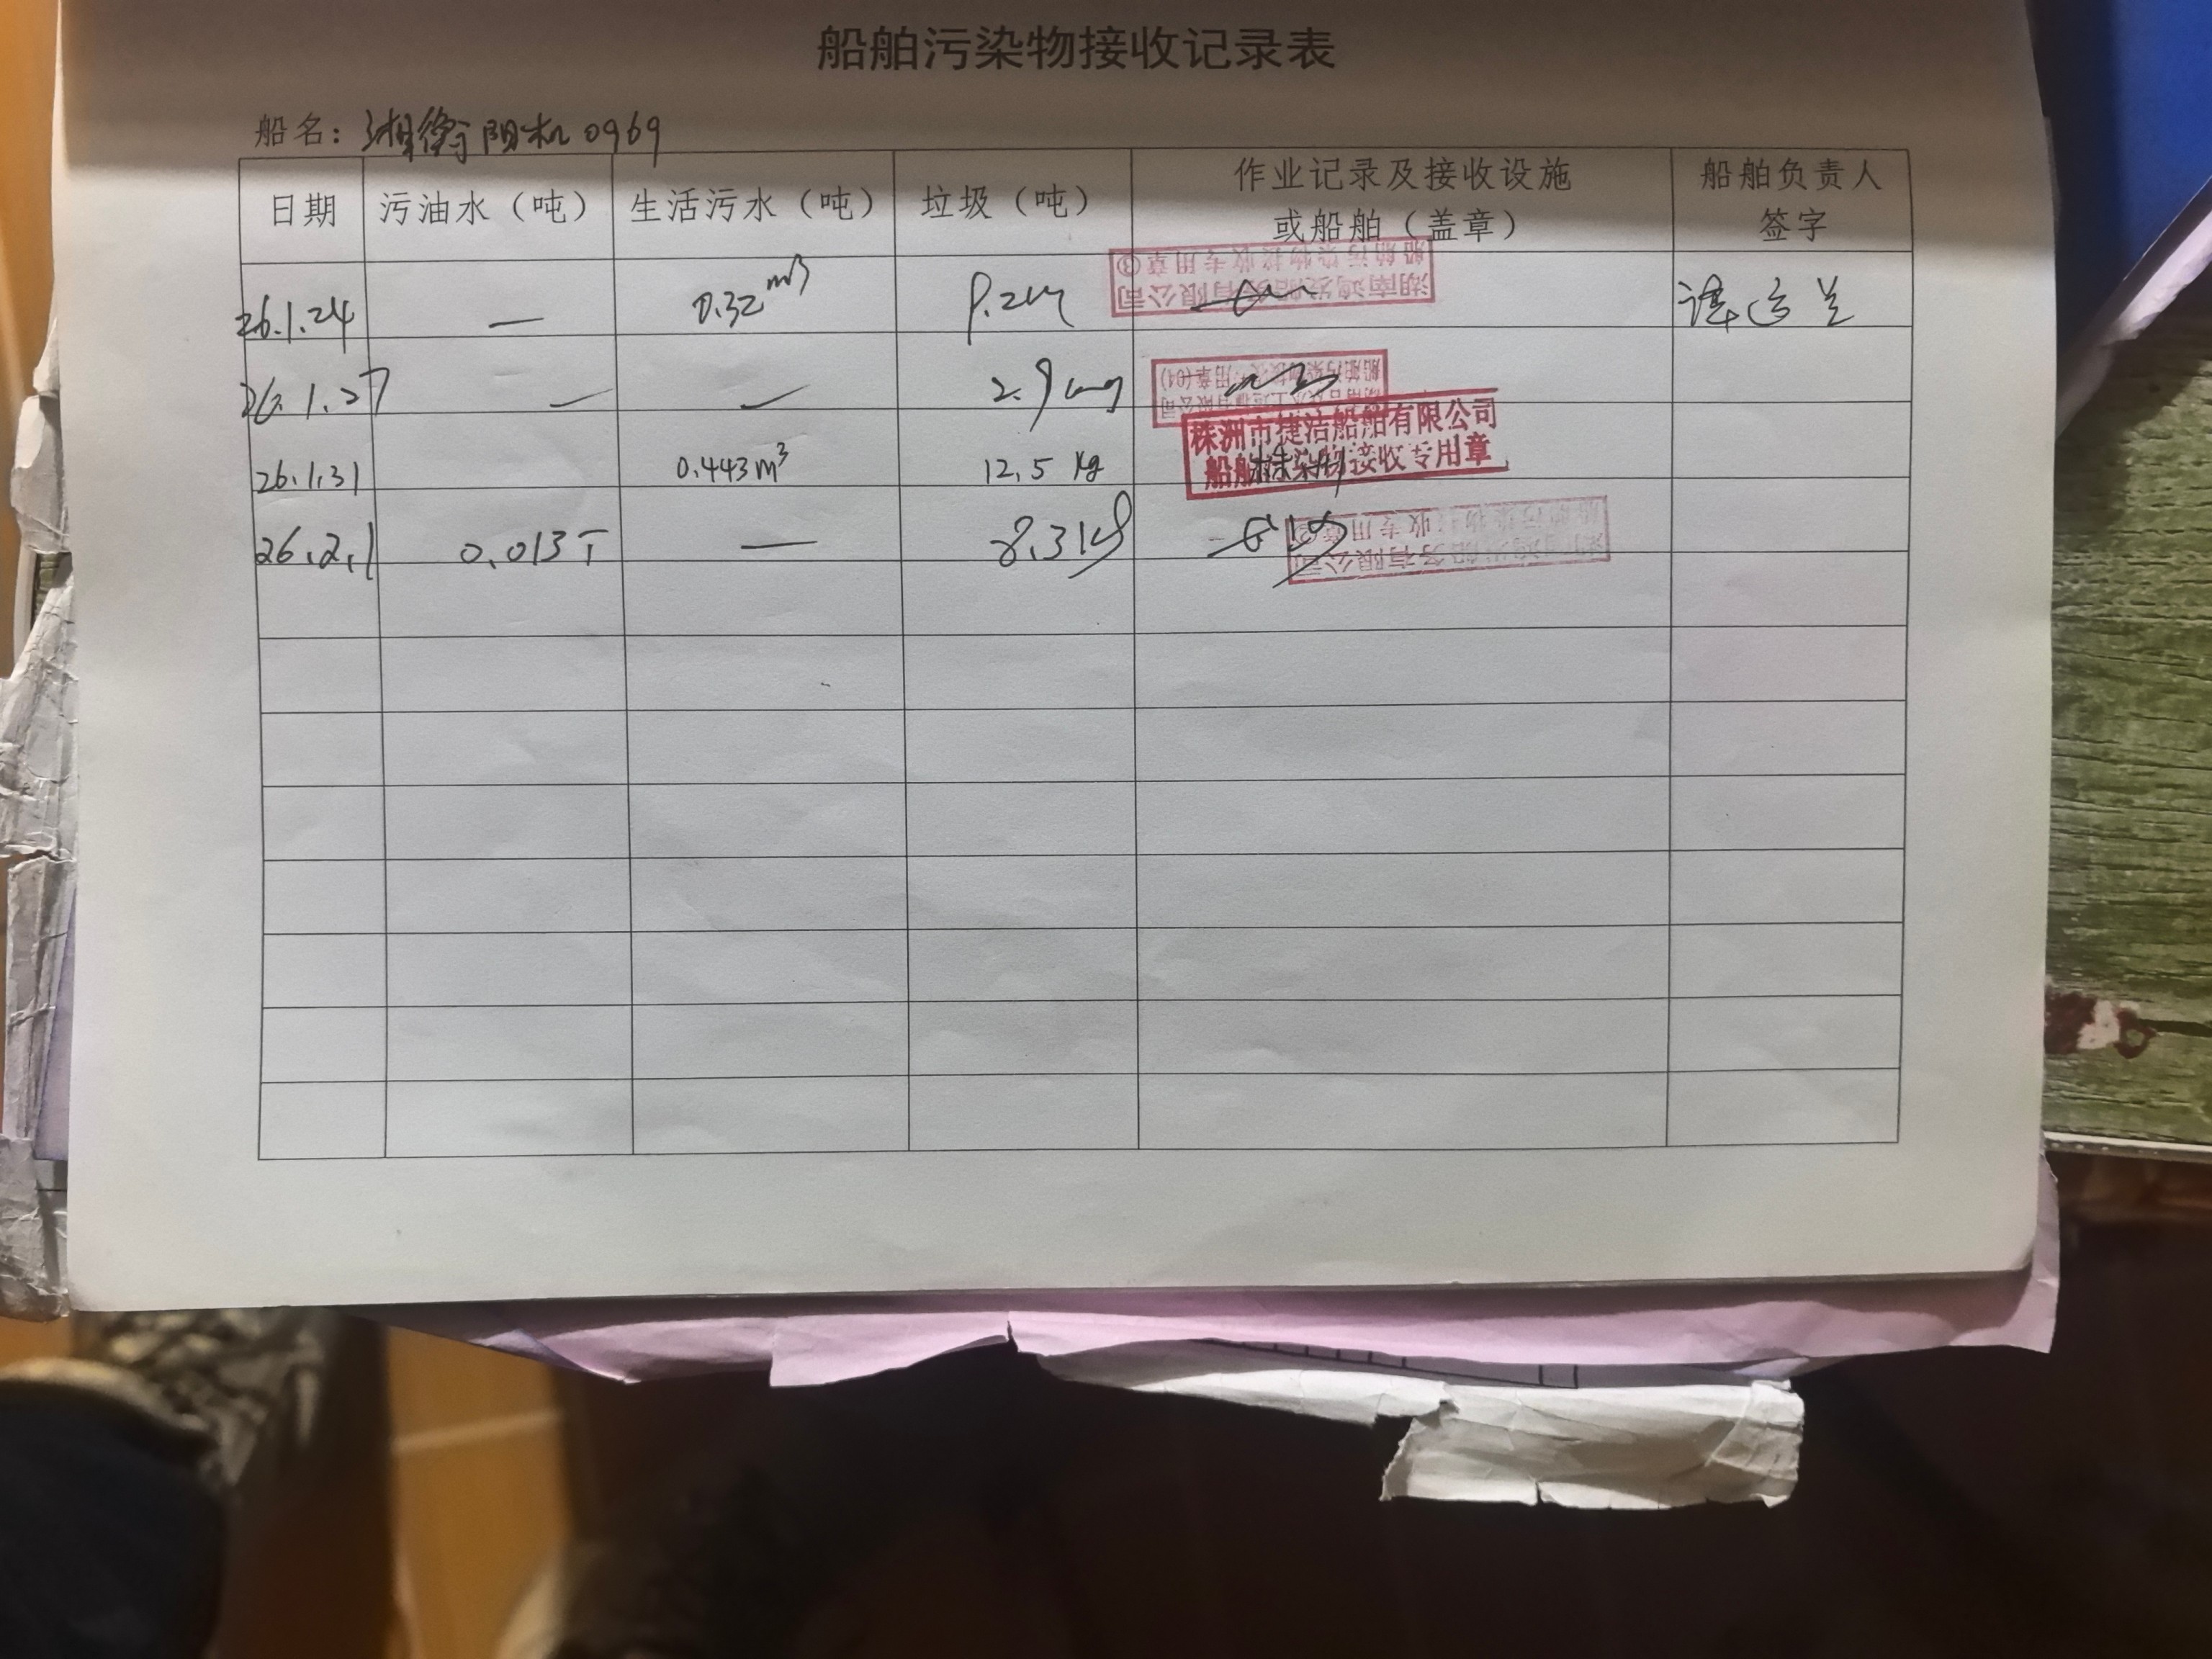 船舶污染物接收记录表
船名：湘衡阳机0969
日期 污油水（吨） 生活污水（吨） 垃圾（吨） 作业记录及接收设施或船舶（盖章） 船舶负责人签字
26.1.24 — 0.32m³ 湖南鸿发船务有限公司 船舶污染物接收专用章③
26.1.27 — — 2.9kg 船舶污染物接收专用章(01)
26.1.31 0.443m³ 12.5kg 株洲市捷洁船舶有限公司 船舶污染物接收专用章 株洲
26.2.1 0.013T — 8.3kg 湖南鸿发船务有限公司 船舶污染物接收专用章